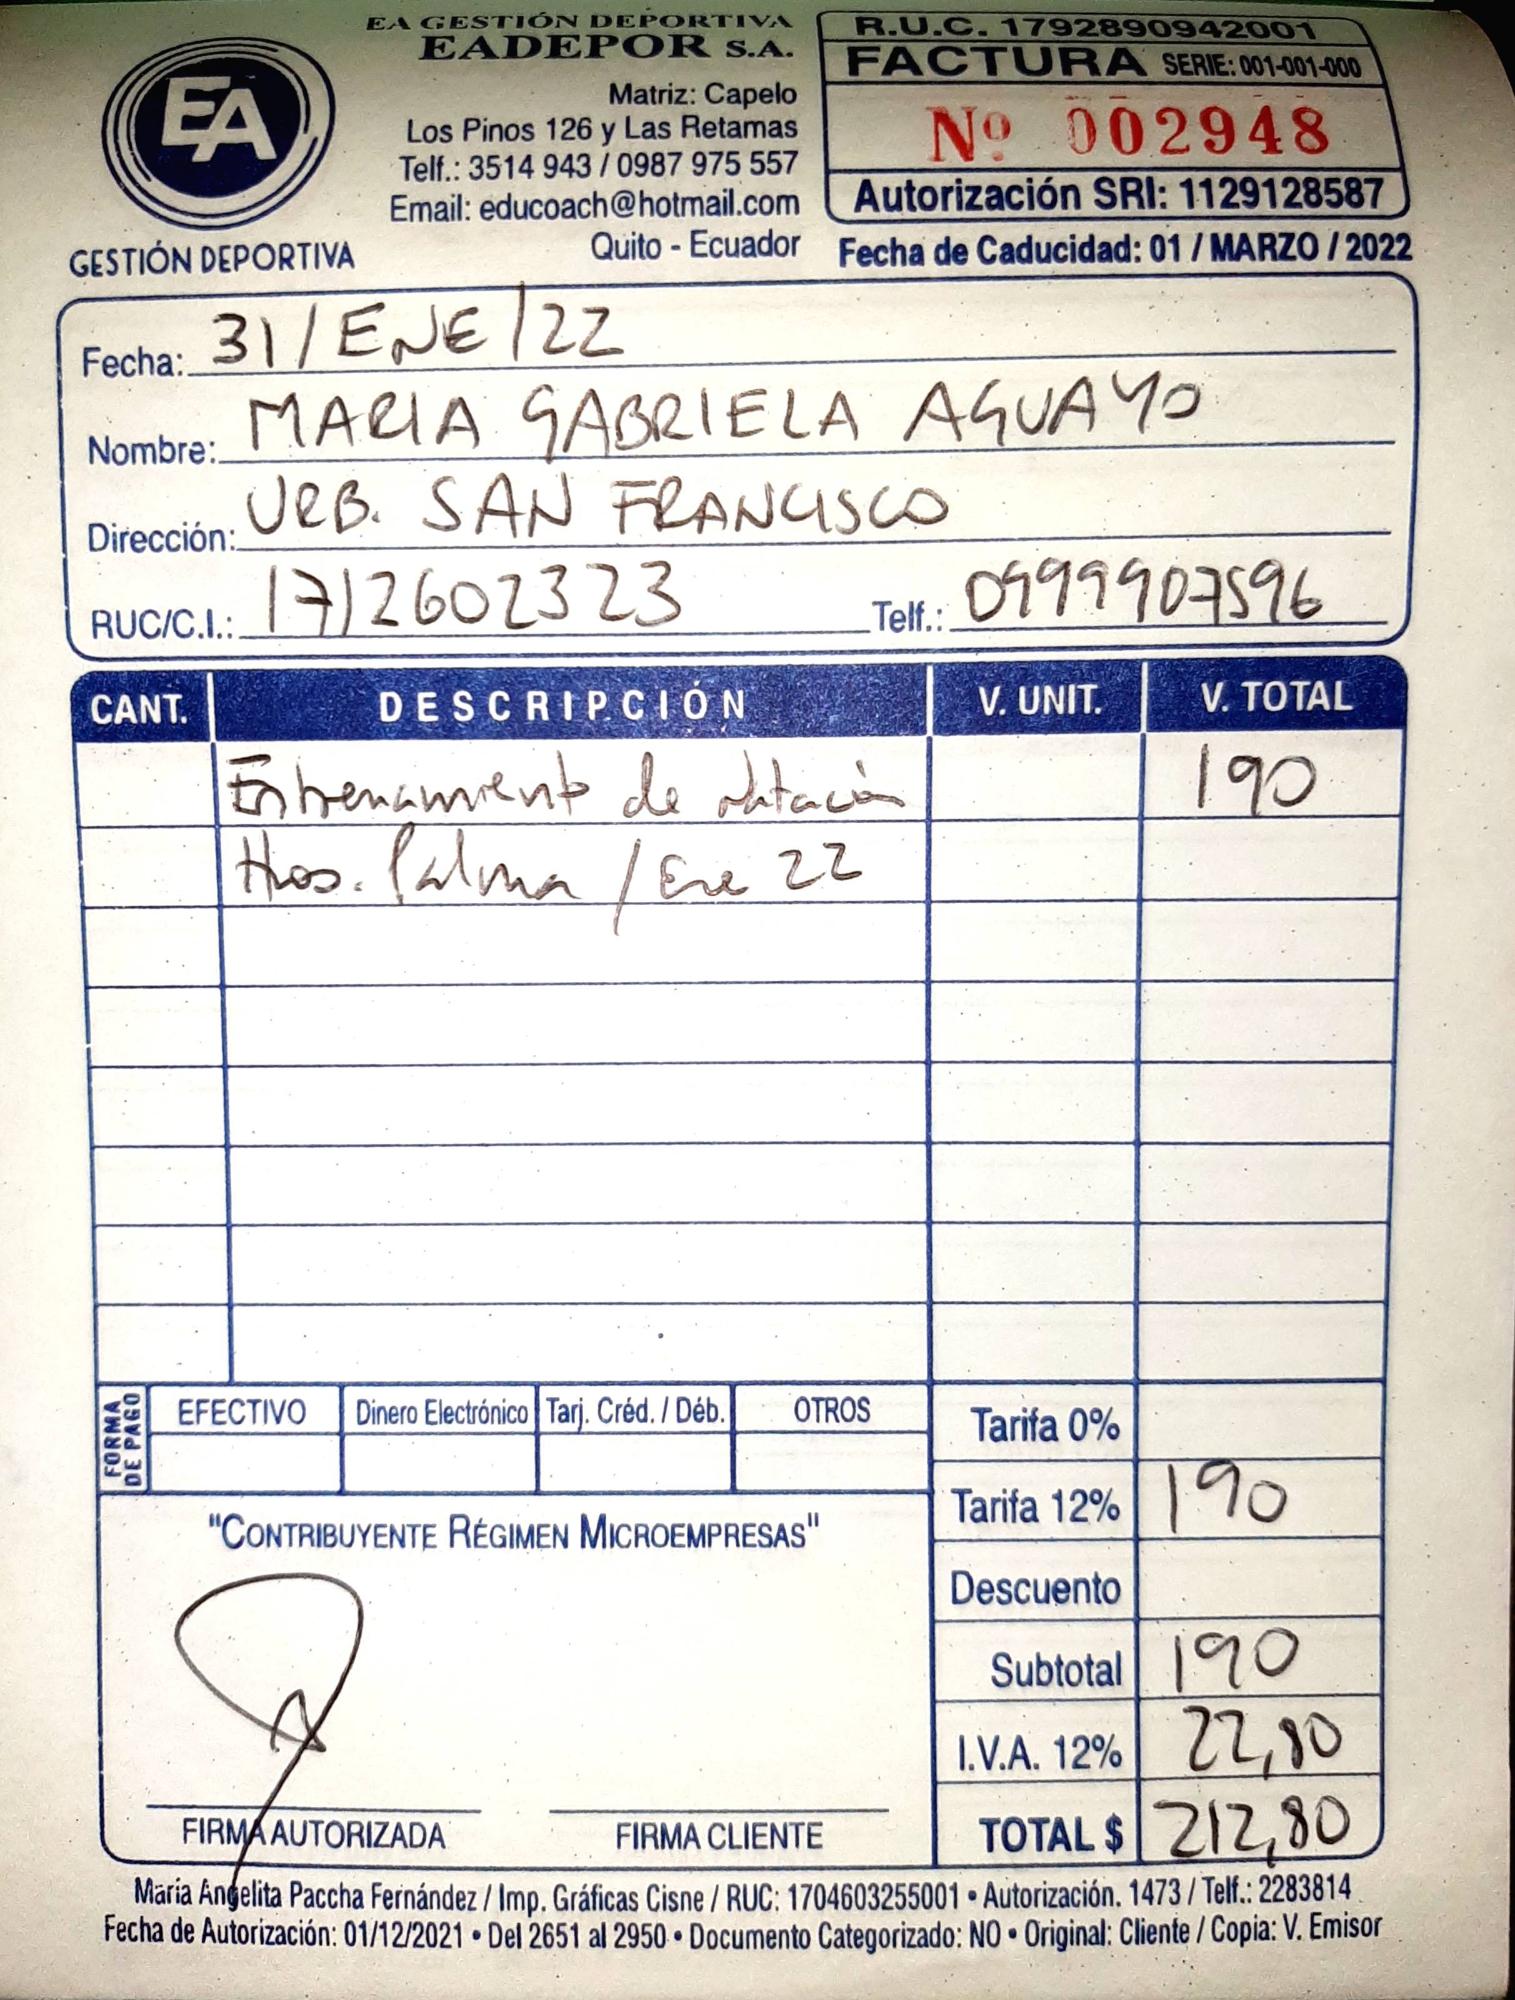 EA GESTIÓN DEPORTIVA
EADEPOR S.A.
EA
GESTIÓN DEPORTIVA
Matriz: Capelo
Los Pinos 126 y Las Retamas
Telf.: 3514 943 / 0987 975 557
Email: educoach@hotmail.com
Quito - Ecuador
R.U.C. 1792890942001
FACTURA SERIE: 001-001-000
Nº 002948
Autorización SRI: 1129128587
Fecha de Caducidad: 01 / MARZO / 2022
Fecha: 31/ENE/22
Nombre: MARIA GABRIELA AGUAYO
Dirección: URB. SAN FRANCISCO
RUC/C.I.: 1712602323 Telf.: 0999907596
CANT. DESCRIPCIÓN V. UNIT. V. TOTAL
Entrenamiento de natación 190
Hnos. Palma / Ene 22
FORMA DE PAGO
EFECTIVO Dinero Electrónico Tarj. Créd. / Déb. OTROS
Tarifa 0%
Tarifa 12% 190
Descuento
Subtotal 190
I.V.A. 12% 22,80
TOTAL $ 212,80
"CONTRIBUYENTE RÉGIMEN MICROEMPRESAS"
FIRMA AUTORIZADA FIRMA CLIENTE
María Angelita Paccha Fernández / Imp. Gráficas Cisne / RUC: 1704603255001 • Autorización. 1473 / Telf.: 2283814
Fecha de Autorización: 01/12/2021 • Del 2651 al 2950 • Documento Categorizado: NO • Original: Cliente / Copia: V. Emisor